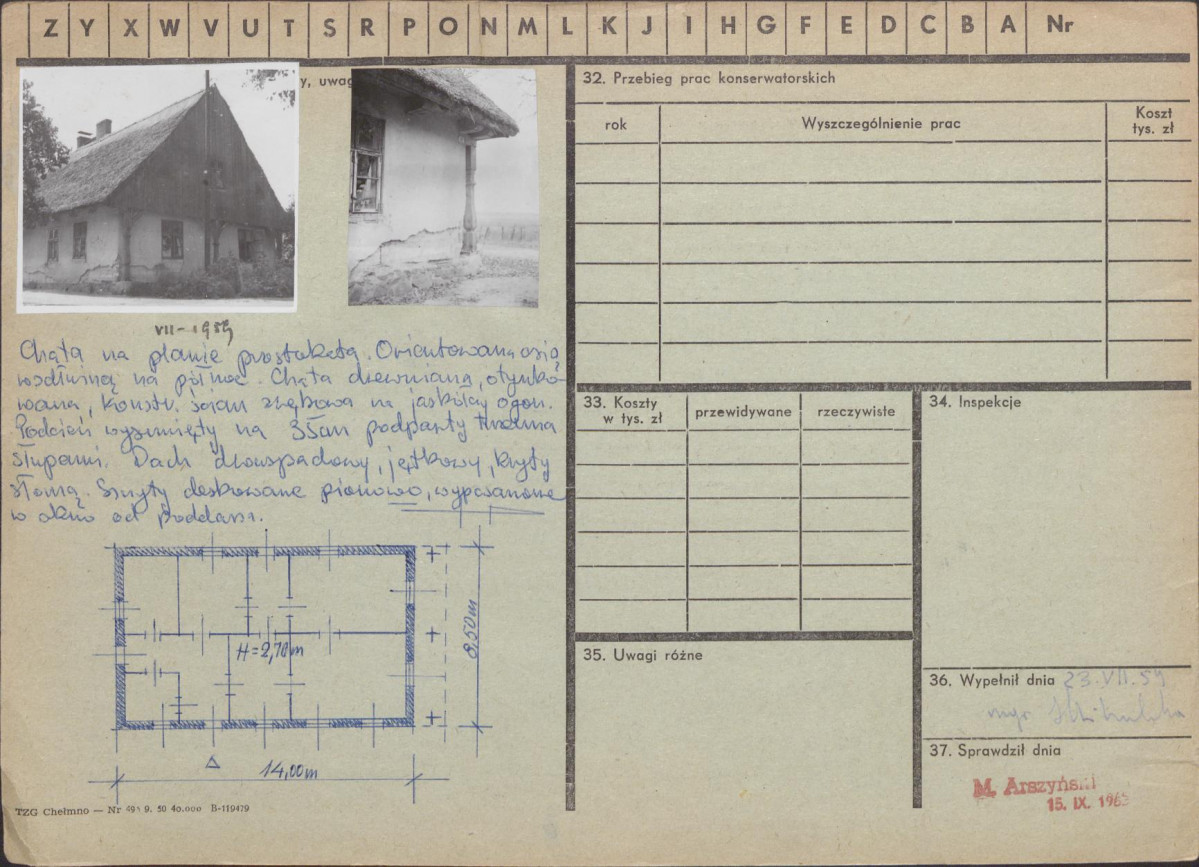 Z Y X W V U T S R P O N M L K J I H G F E D C B A Nr
y, uwag
VII - 1959
Chata na planie prostokąta. Orientowana osią
wzdłużną na północ. Chata drewniana, otynko-
wana, konstr. ścian zrębowa na jaskółczy ogon.
Podcień wysunięty na 3 ścian podparty trzema
słupami. Dach dwuspadowy, jętkowy, kryty
słomą. Szczyty deskowane pionowo, wyposażone
w okno od poddasza.
H = 2,70 m
8,50 m
14,00 m
TZG Chełmno — Nr 9. 50 40.000 B-119479
32. Przebieg prac konserwatorskich
rok
Wyszczególnienie prac
Koszt
tys. zł
33. Koszty
w tys. zł
przewidywane
rzeczywiste
34. Inspekcje
35. Uwagi różne
36. Wypełnił dnia 23.VII.59
mgr
37. Sprawdził dnia
M. Arszyński
15. IX. 196